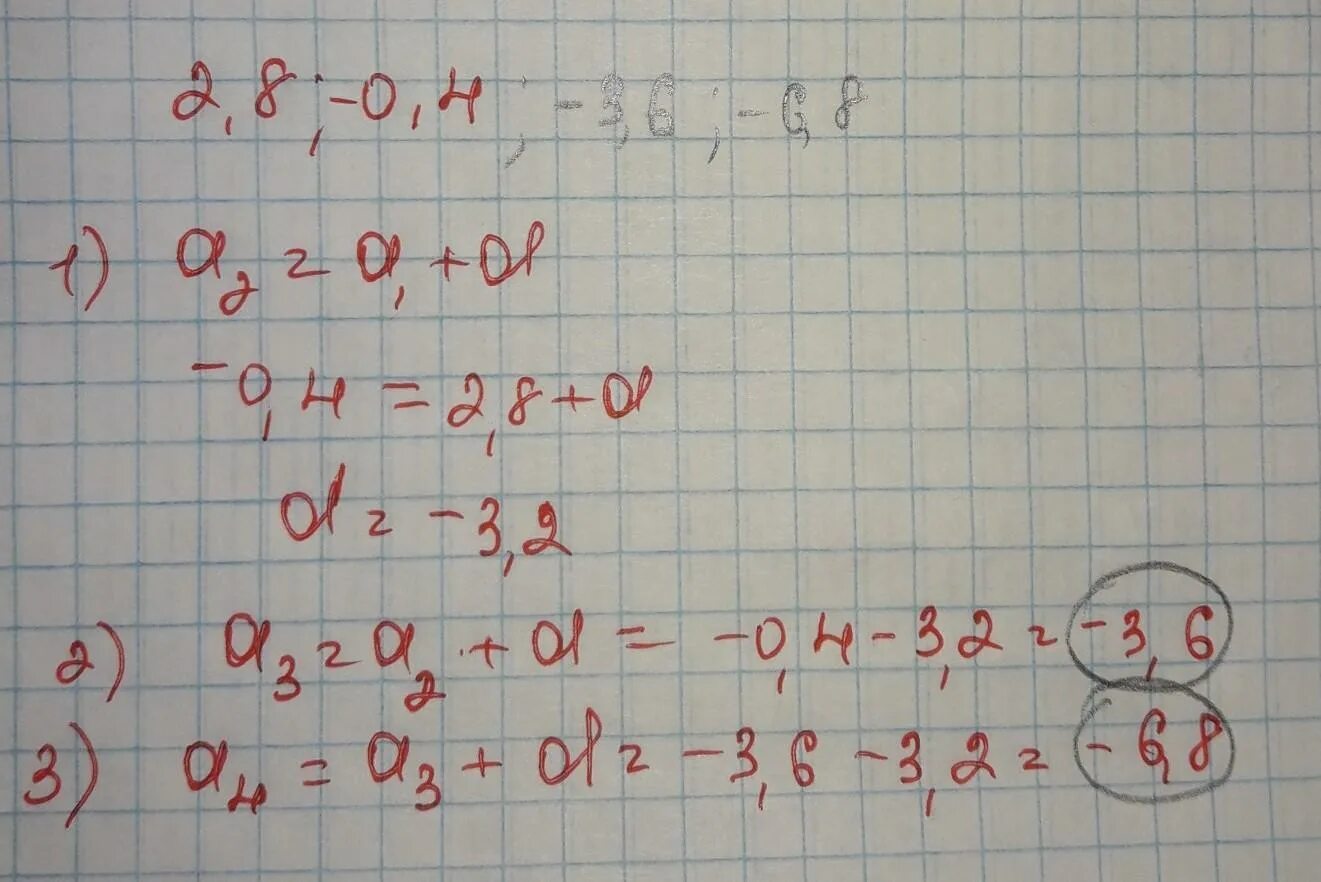 2,8; -0,4; -3,6; -6,8
1) a₂ = a₁ + d
-0,4 = 2,8 + d
d = -3,2
2) a₃ = a₂ + d = -0,4 - 3,2 = -3,6
3) a₄ = a₃ + d = -3,6 - 3,2 = -6,8